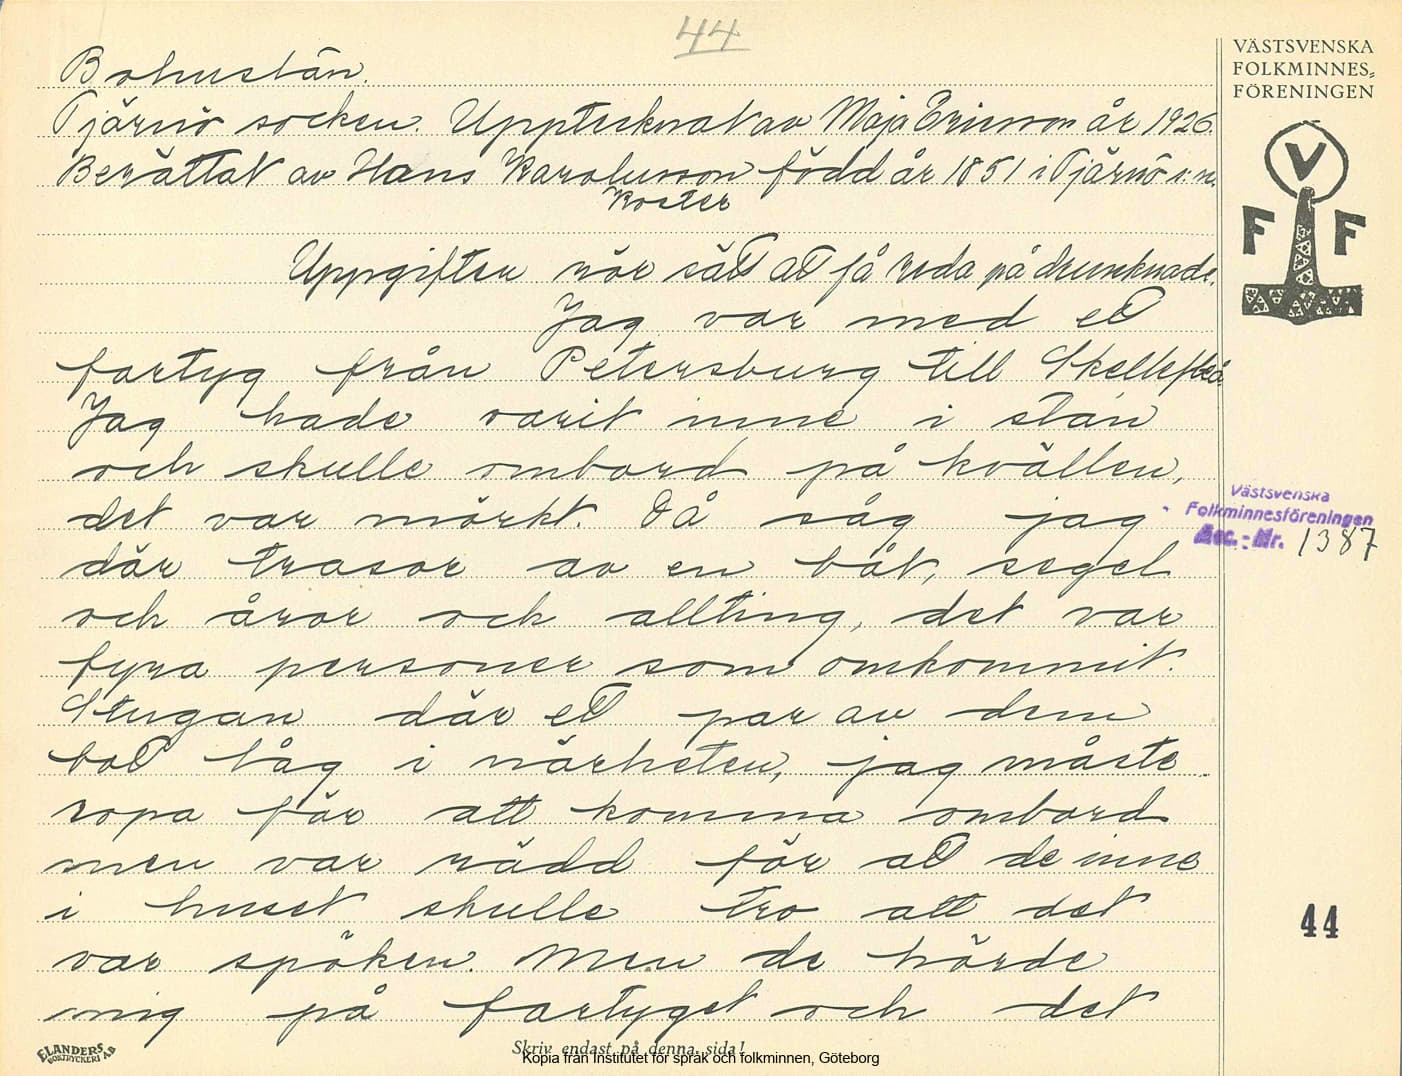 44
VÄSTSVENSKA
FOLKMINNES=
FÖRENINGEN
Bohuslän.
Tjärnö socken. Upptecknat av Maja Ericsson år 1926.
Berättat av Hans Karolusson född år 1851 i Tjärnö s:n.
Koster
V
F F
Uppgiften rör sätt att få reda på drunknade.
Jag var med ett
fartyg från Petersburg till Skellefteå.
Jag hade varit inne i stan
och skulle ombord på kvällen,
det var mörkt. Då såg jag
där trasor av en båt, segel
och åror och allting, det var
fyra personer som omkommit.
Stugan där ett par av dem
bott låg i närheten, jag måste
ropa för att komma ombord
men var rädd för att de inne
i huset skulle tro att det
var spöken. Men de hörde
mig på fartyget och det
Västsvenska
Folkminnesföreningen
Acc. - Nr. 1387
44
ELANDERS
BOKTRYCKERI A.B
Skriv endast på denna sida!
Kopia från Institutet för språk och folkminnen, Göteborg